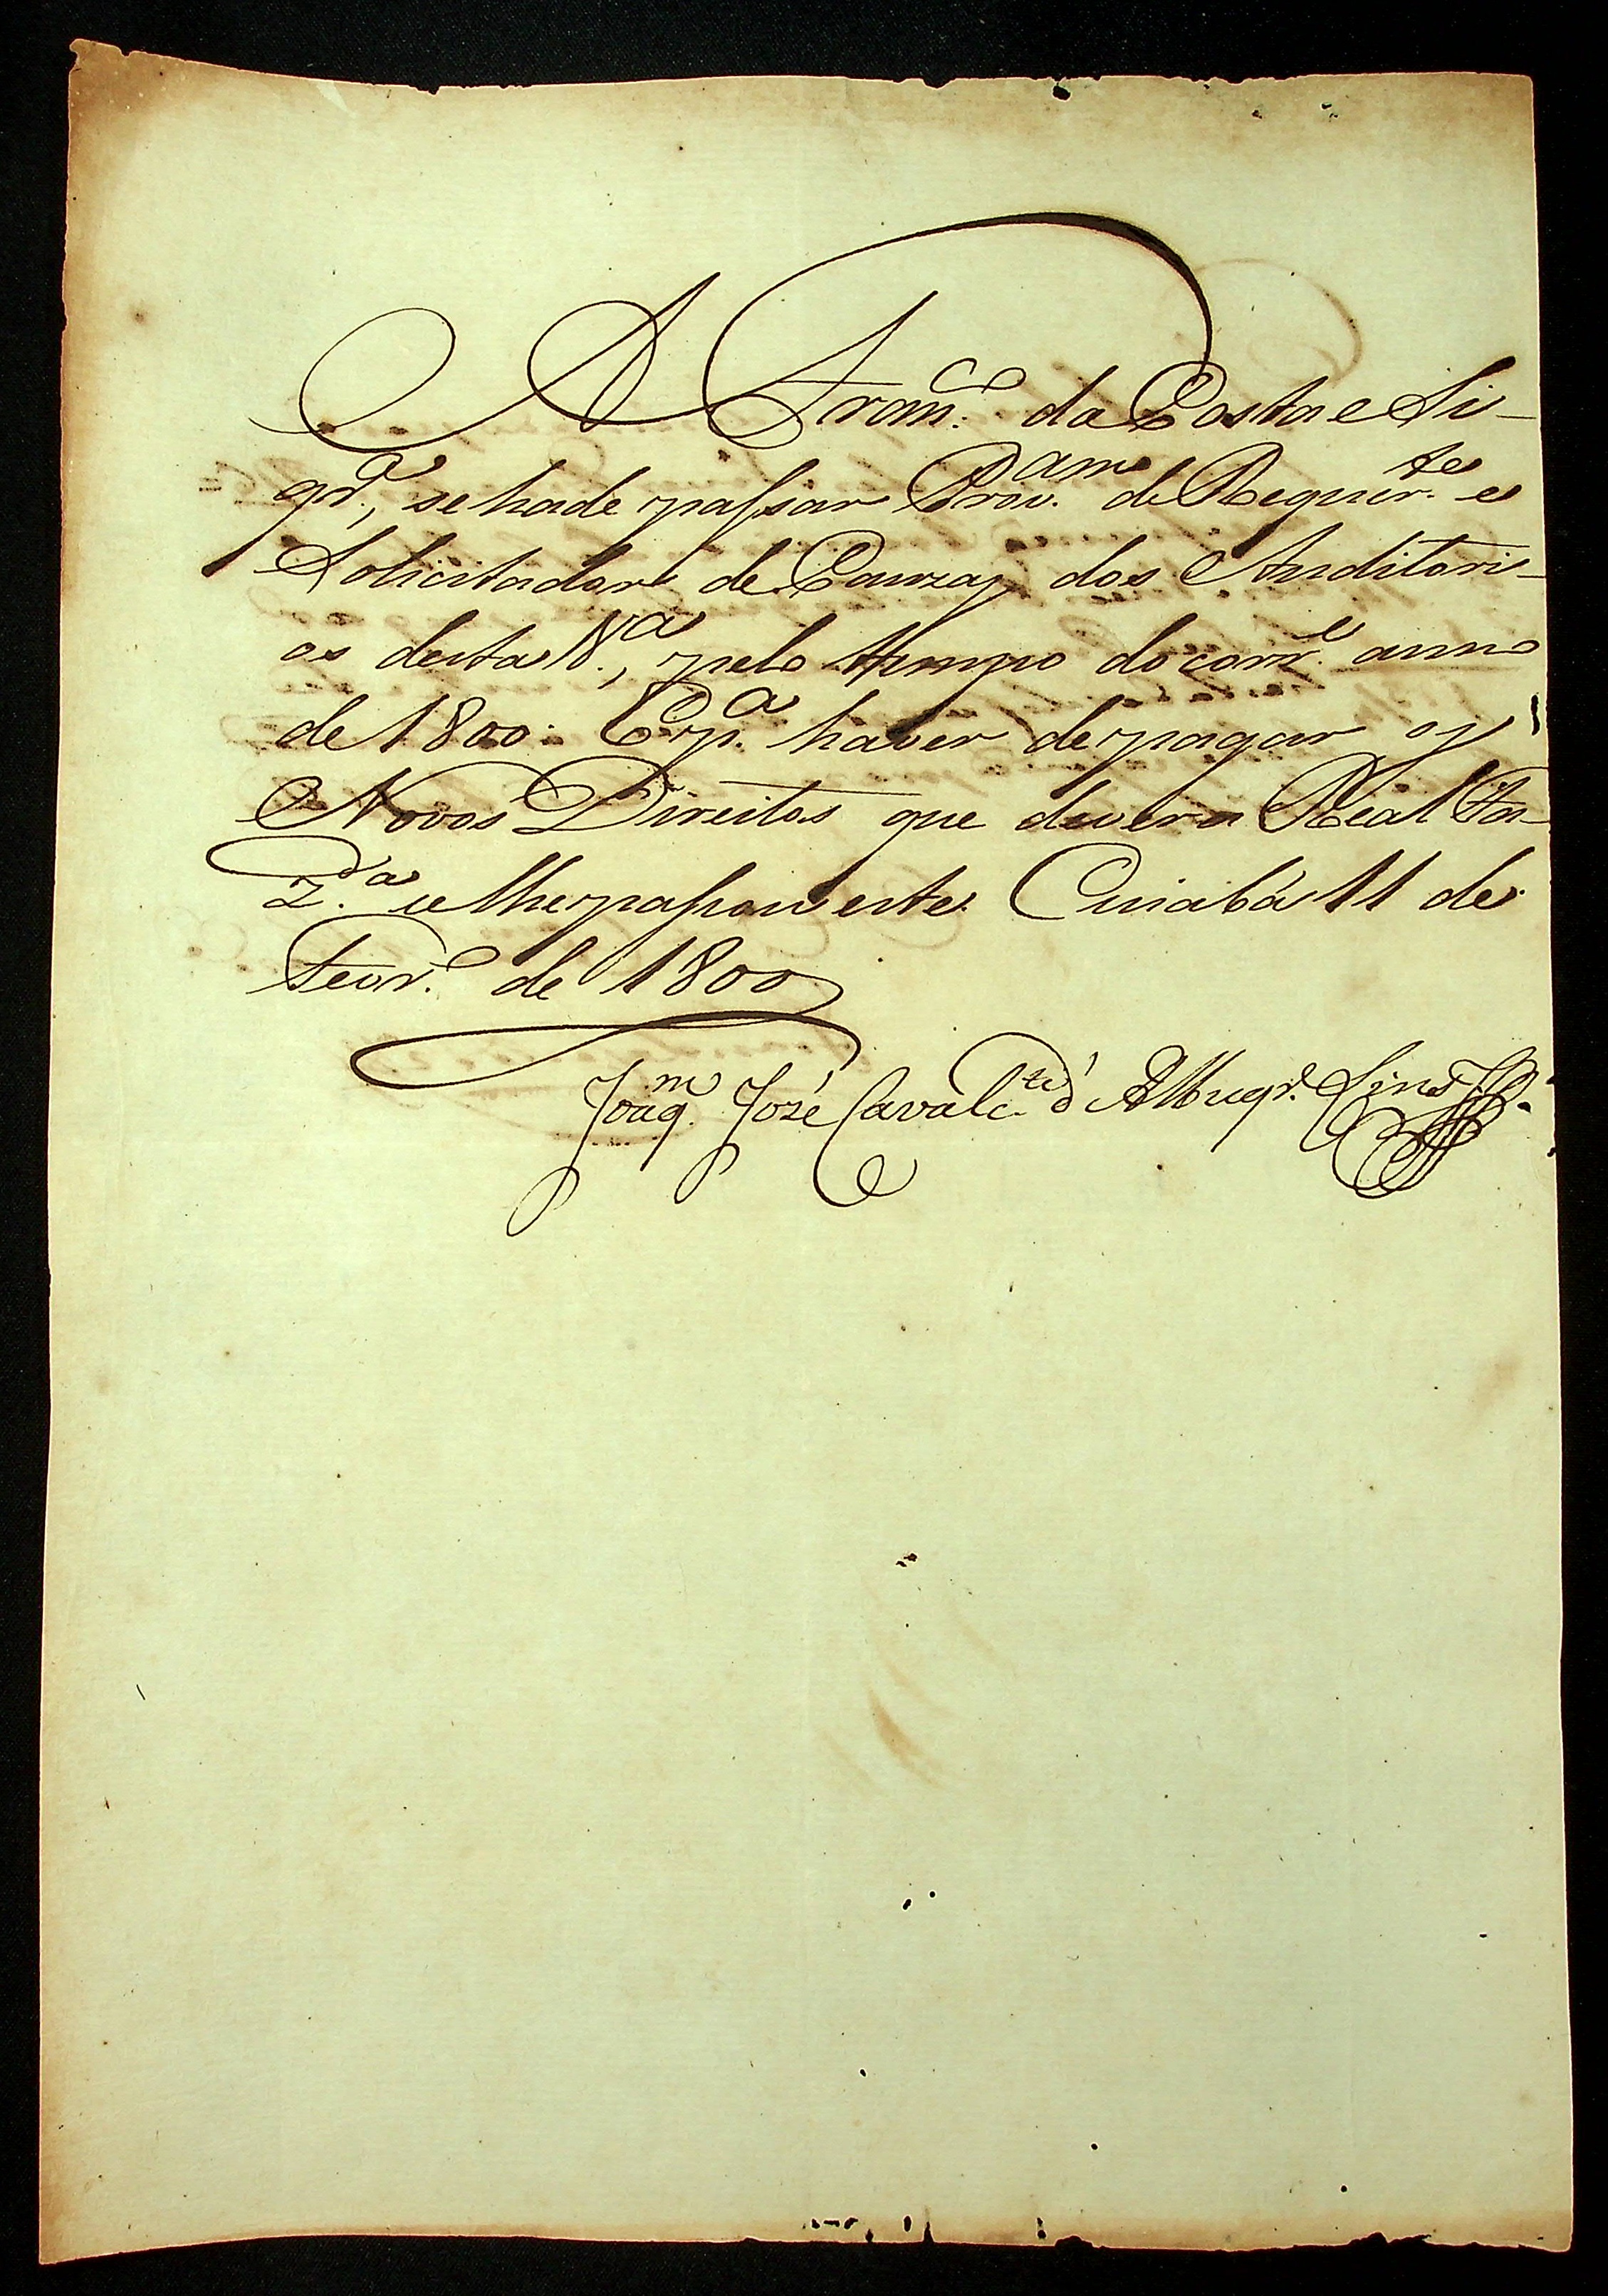 A Fran.co da Costa e Si-
qr.a, se hade passar Provam. de Requer.te e
Solicitador de Cauzas dos Auditori-
os desta V.a, pelo tempo do corr.e anno
de 1800. E p.a haver de pagar os
Novos Direitos que dever a Real Fa-
z.da se lhe passou este. Cuiabá 11 de
Fevr.o de 1800
Joaq.m José Cavalc.te d'Albuqr.e Lins